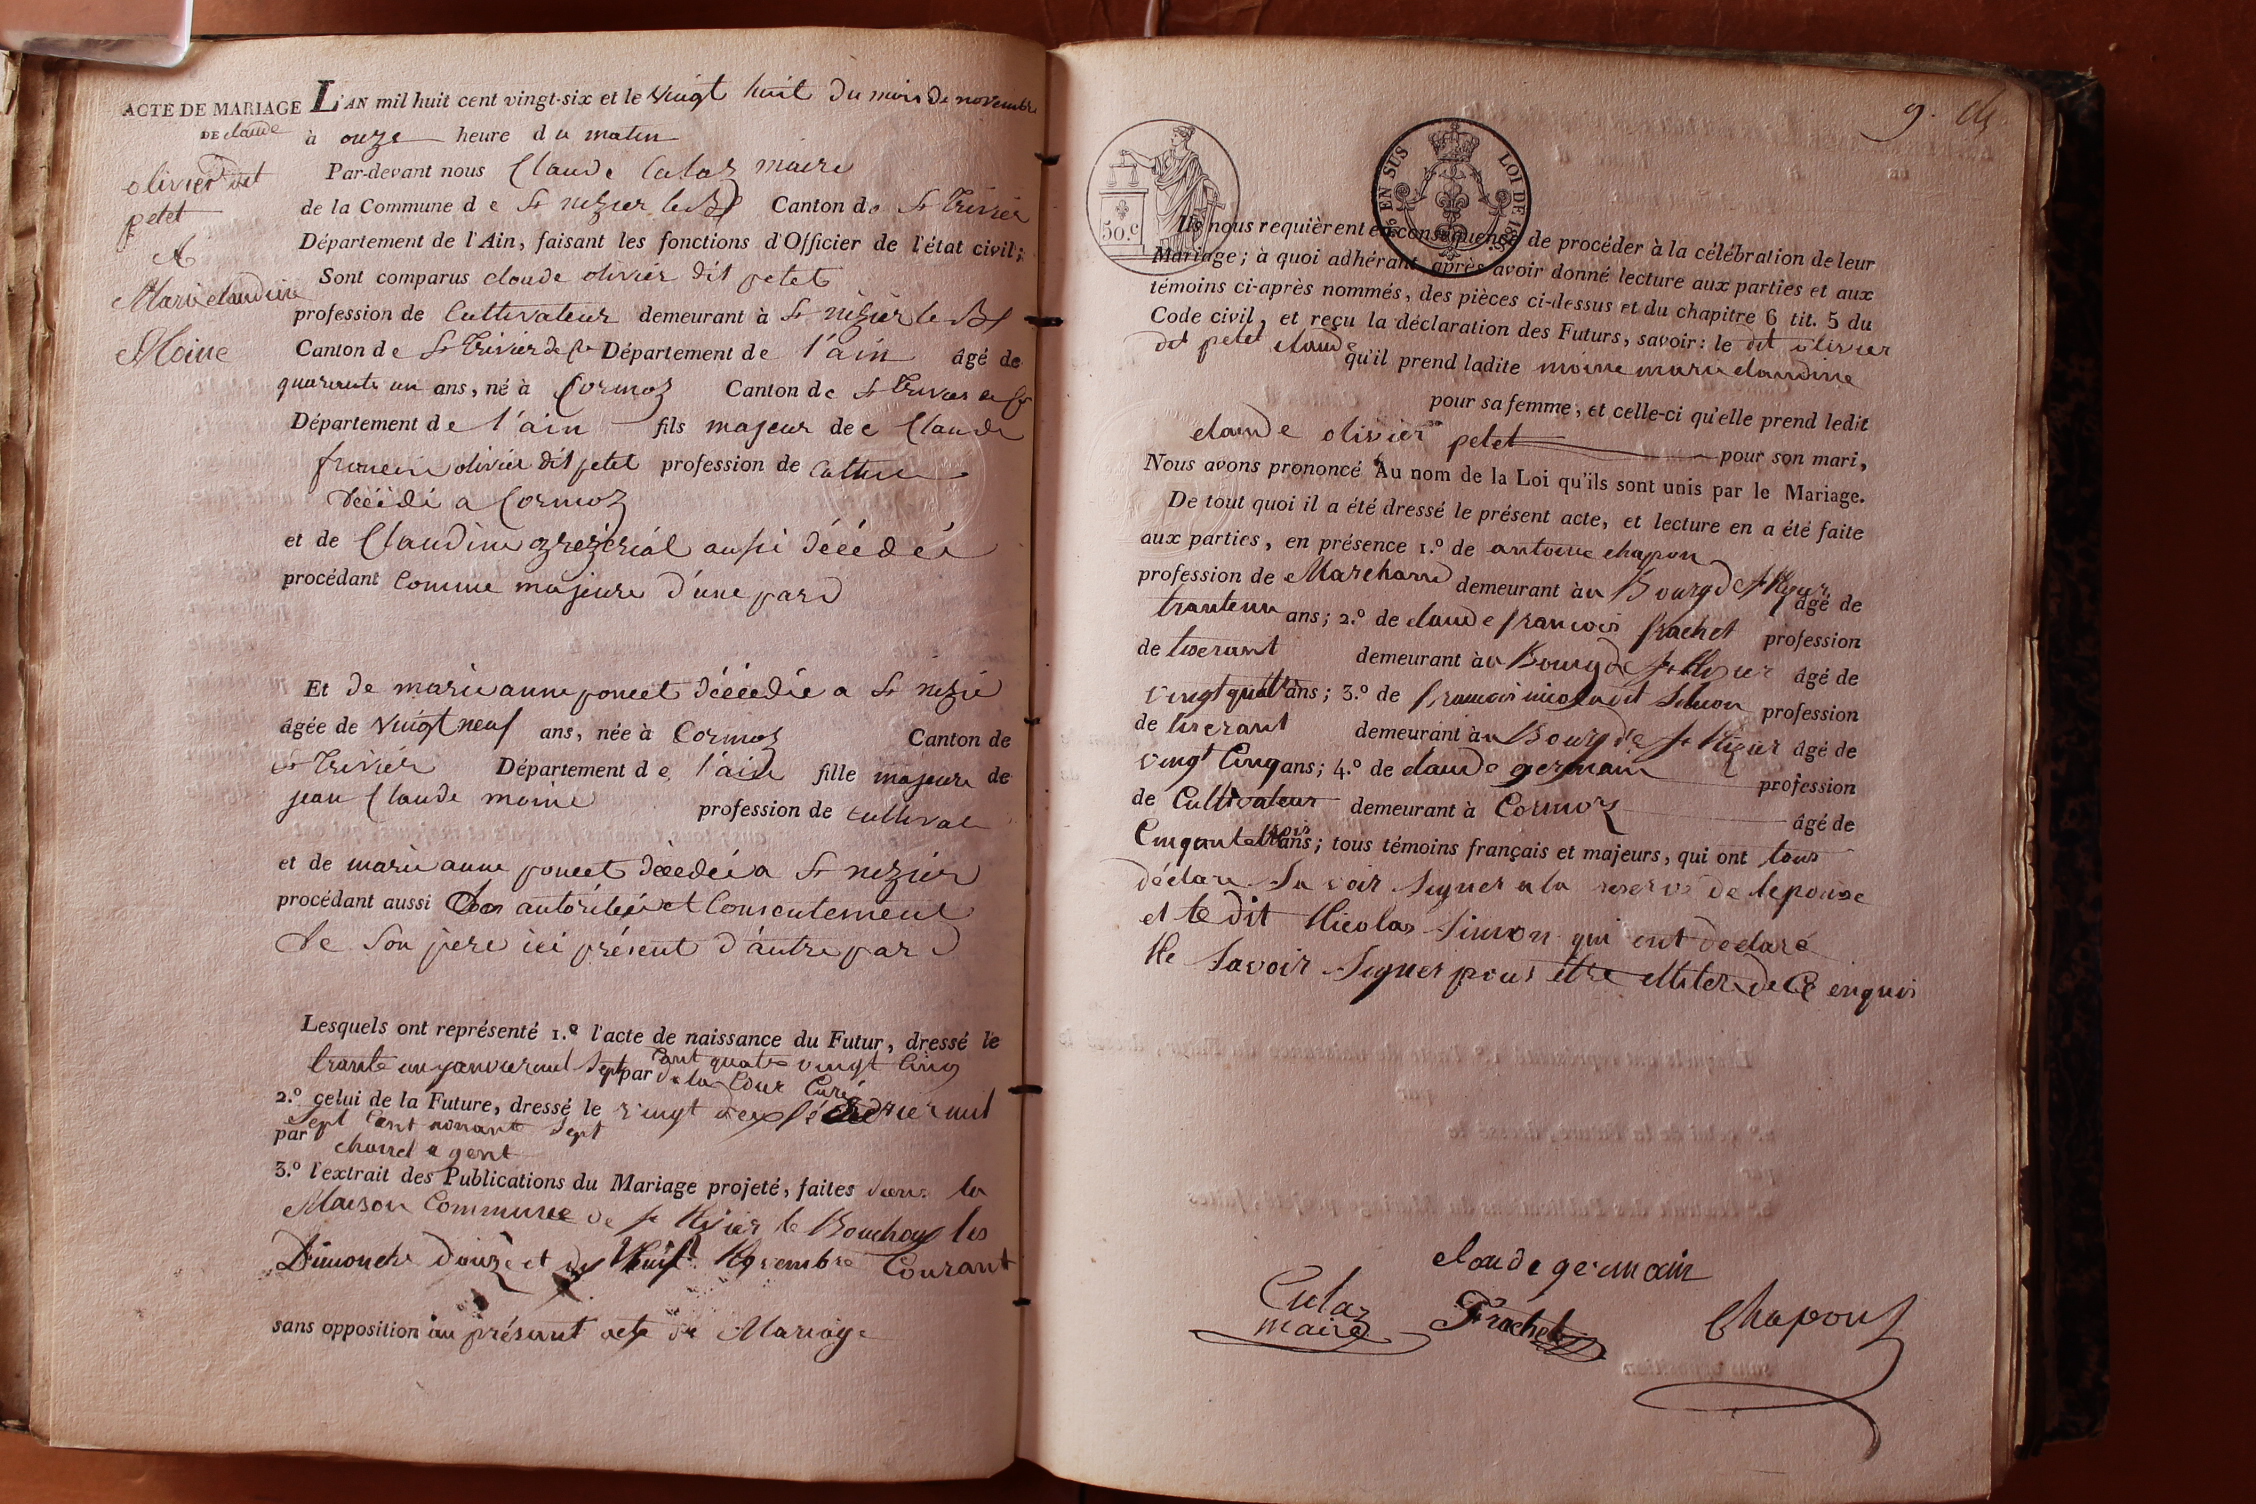 ACTE DE MARIAGE
DE claude
olivier dit
petet
&
Marie claudine
Moine
L'AN mil huit cent vingt-six et le vingt huit du mois de novembre
à onze heure du matin
Par-devant nous Claude Culaz maire
de la Commune de St nizier le B Canton de St Trivier
Département de l'Ain, faisant les fonctions d'Officier de l'état civil;
Sont comparus claude olivier dit petet
profession de Cultivateur demeurant à St nizier le B
Canton de St Trivier de Département de l'ain âgé de
quarante un ans, né à Cormoz Canton de St Trivier de
Département de l'ain fils majeur de Claude
olivier dit petet profession de
décédé a Cormoz
et de Claudine aussi décédée
procédant Comme majeure d'une part
Et de marie anne poncet décédée a St nizie
âgée de vingt neuf ans, née à Cormoz Canton de
St Trivier Département de l'ain fille majeure de
jean Claude moine profession de cultivat
et de marie anne poncet décedée a St nizier
procédant aussi autorité et Consentement
de Son père ici présent d'autre par
Lesquels ont représenté 1.º l'acte de naissance du Futur, dressé le
trante un janvier mil sept cent quatre vingt Cinq
par de la Cour Curé
2.º celui de la Future, dressé le vingt deux mil
Sept Cent nonante Sept
par agent
3.º l'extrait des Publications du Mariage projeté, faites dans la
Maison Commune de St Nizier le Bouchoux les
Dimanche douze et dix Neuf Novembre Courant
sans opposition au présent acte de Mariage
9.
50.c
EN SUS LOI DE
Ils nous requièrent en conséquence de procéder à la célébration de leur
Mariage; à quoi adhérant, après avoir donné lecture aux parties et aux
témoins ci-après nommés, des pièces ci-dessus et du chapitre 6 tit. 5 du
Code civil, et reçu la déclaration des Futurs, savoir: le dit olivier
dit petet claude qu'il prend ladite moine marie claudine
pour sa femme, et celle-ci qu'elle prend ledit
claude olivier petet pour son mari,
Nous avons prononcé Au nom de la Loi qu'ils sont unis par le Mariage.
De tout quoi il a été dressé le présent acte, et lecture en a été faite
aux parties, en présence 1.º de antoine chapon
profession de Marchand demeurant àu Bourg de St Nizier âgé de
trante un ans; 2.º de claude francois frachet profession
de tiserant demeurant àu Bourg de St Nizier âgé de
vingt quatr ans; 3.º de francois nicolas dit Simon profession
de tiserant demeurant àu Bourg de St Nizier âgé de
vingt Cinq ans; 4.º de claude germain profession
de Cultivateur demeurant à Cormoz âgé de
Cinquante trois ans; tous témoins français et majeurs, qui ont tous
déclaré Savoir Signer a la reserve de lepouse
et le dit Nicolas Simon qui ont declaré
Ne Savoir Signer pour être de Ce enquis
claude germain
Culaz
maire
Frachet
Chapon